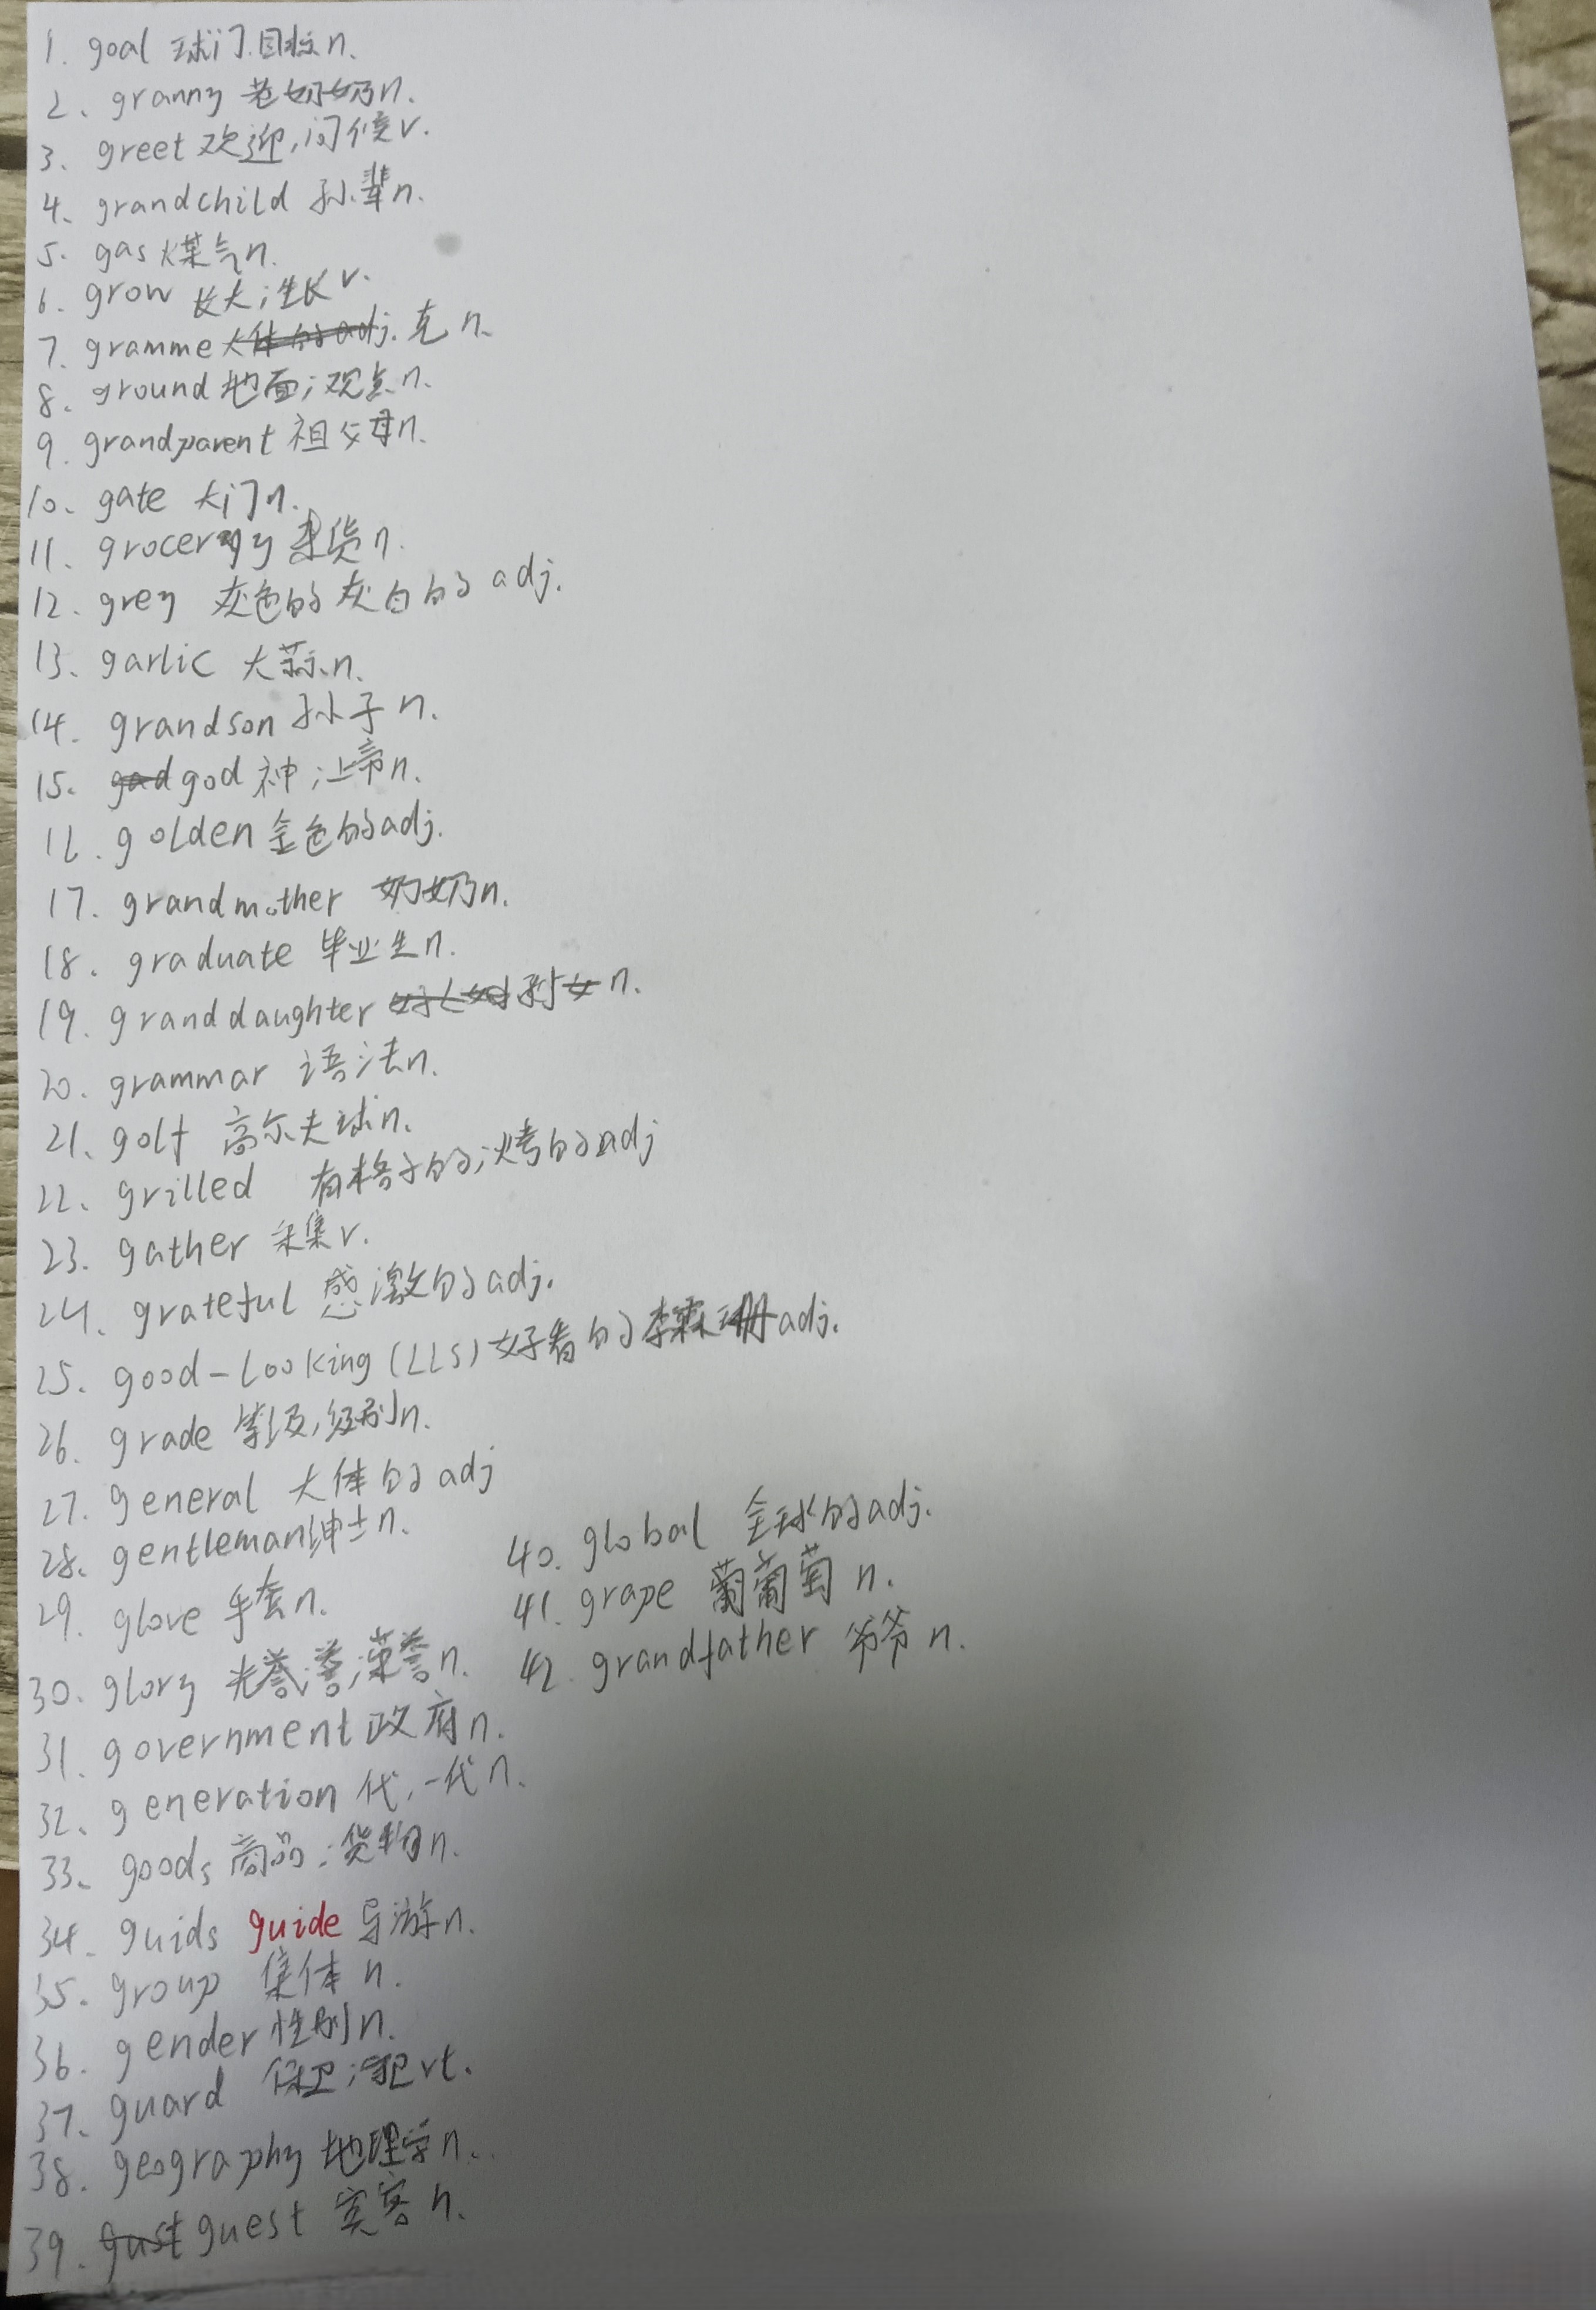 1. goal 球门.目标n.
2、granny 老奶奶n.
3、greet 欢迎,问候v.
4、grandchild 孙辈n.
5. gas 煤气n.
6. grow 长大;生长v.
7. gramme 大体的adj. 克 n.
8、ground 地面;观点n.
9. grandparent 祖父母n.
10、gate 大门n.
11、grocery 杂货n.
12、grey 灰色的灰白的adj.
13、garlic 大蒜n.
14. grandson 孙子n.
15. gad god 神;上帝n.
16. golden 金色的adj.
17. grandmother 奶奶n.
18. graduate 毕业生n.
19. granddaughter 孙女n.
20. grammar 语法n.
21、golf 高尔夫球n.
22、grilled 有格子的;烤的adj
23. gather 采集v.
24. grateful 感激的adj.
25. good-looking (LLS) 好看的李霖珊adj.
26. grade 等级,级别n.
27. general 大体的adj
28. gentleman绅士n.
29. glove 手套n.
30. glory 光誉;荣誉n.
31. government 政府n.
32、generation 代,一代n.
33、goods 商品;货物n.
34. guids guide 导游n.
35. group 集体n.
36. gender 性别n.
37. guard 保卫; vt.
38. geography 地理学n.
39. gust guest 宾客n.
40. global 全球的adj.
41. grape 葡葡萄n.
42. grandfather 爷爷n.